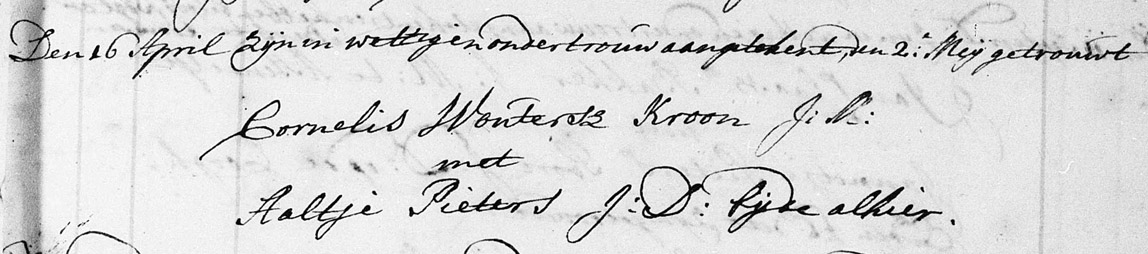 Den 16 April zijn in wettigen ondertrouw aangetekent, den 2.e Meij getrouwt
Cornelis Wouterstz Kroon J: M:
met
Aaltje Pieters J: D: bijde alhier.